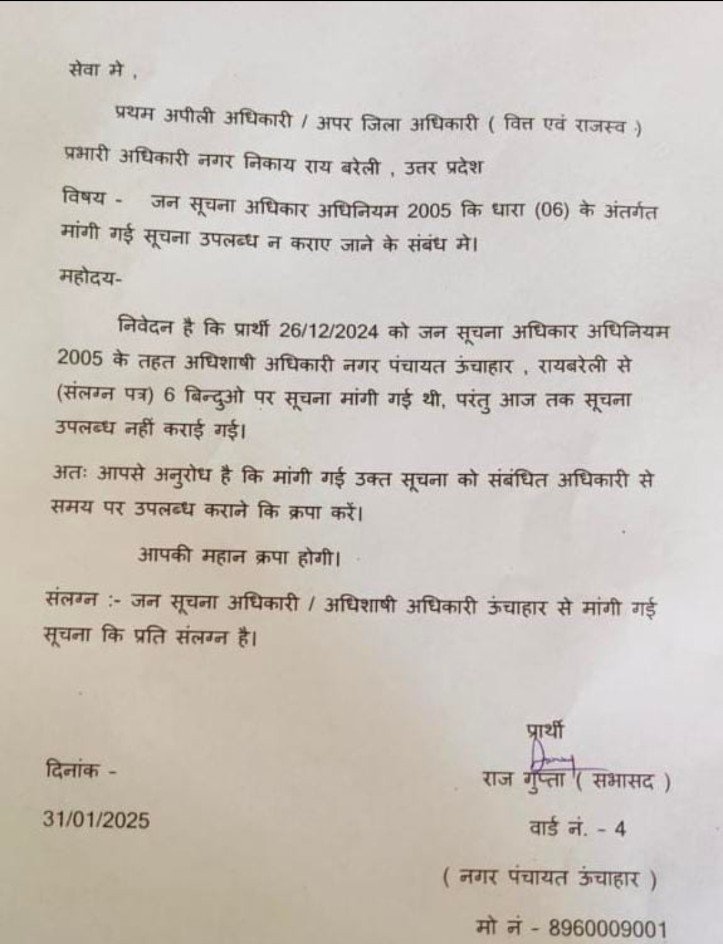 सेवा मे ,
प्रथम अपीली अधिकारी / अपर जिला अधिकारी ( वित्त एवं राजस्व )
प्रभारी अधिकारी नगर निकाय राय बरेली , उत्तर प्रदेश
विषय - जन सूचना अधिकार अधिनियम 2005 कि धारा (06) के अंतर्गत
मांगी गई सूचना उपलब्ध न कराए जाने के संबंध मे।
महोदय-
निवेदन है कि प्रार्थी 26/12/2024 को जन सूचना अधिकार अधिनियम
2005 के तहत अधिशाषी अधिकारी नगर पंचायत ऊंचाहार , रायबरेली से
(संलग्न पत्र) 6 बिन्दुओ पर सूचना मांगी गई थी, परंतु आज तक सूचना
उपलब्ध नहीं कराई गई।
अतः आपसे अनुरोध है कि मांगी गई उक्त सूचना को संबंधित अधिकारी से
समय पर उपलब्ध कराने कि क्रपा करें।
आपकी महान क्रपा होगी।
संलग्न :- जन सूचना अधिकारी / अधिशाषी अधिकारी ऊंचाहार से मांगी गई
सूचना कि प्रति संलग्न है।
प्रार्थी
दिनांक -
राज गुप्ता ( सभासद )
31/01/2025
वार्ड नं. - 4
( नगर पंचायत ऊंचाहार )
मो नं - 8960009001